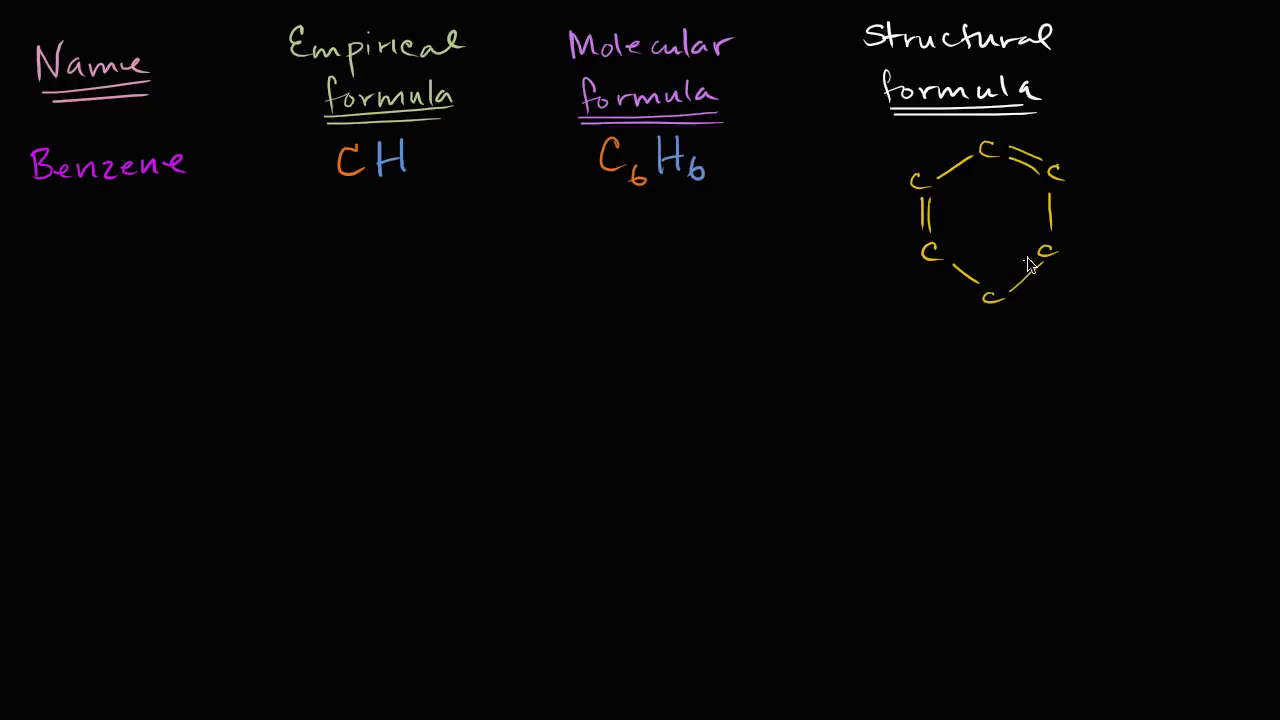 Name
Empirical
formula
Molecular
formula
Structural
formula
Benzene
CH
C₆H₆
C
C
C
C
C
C